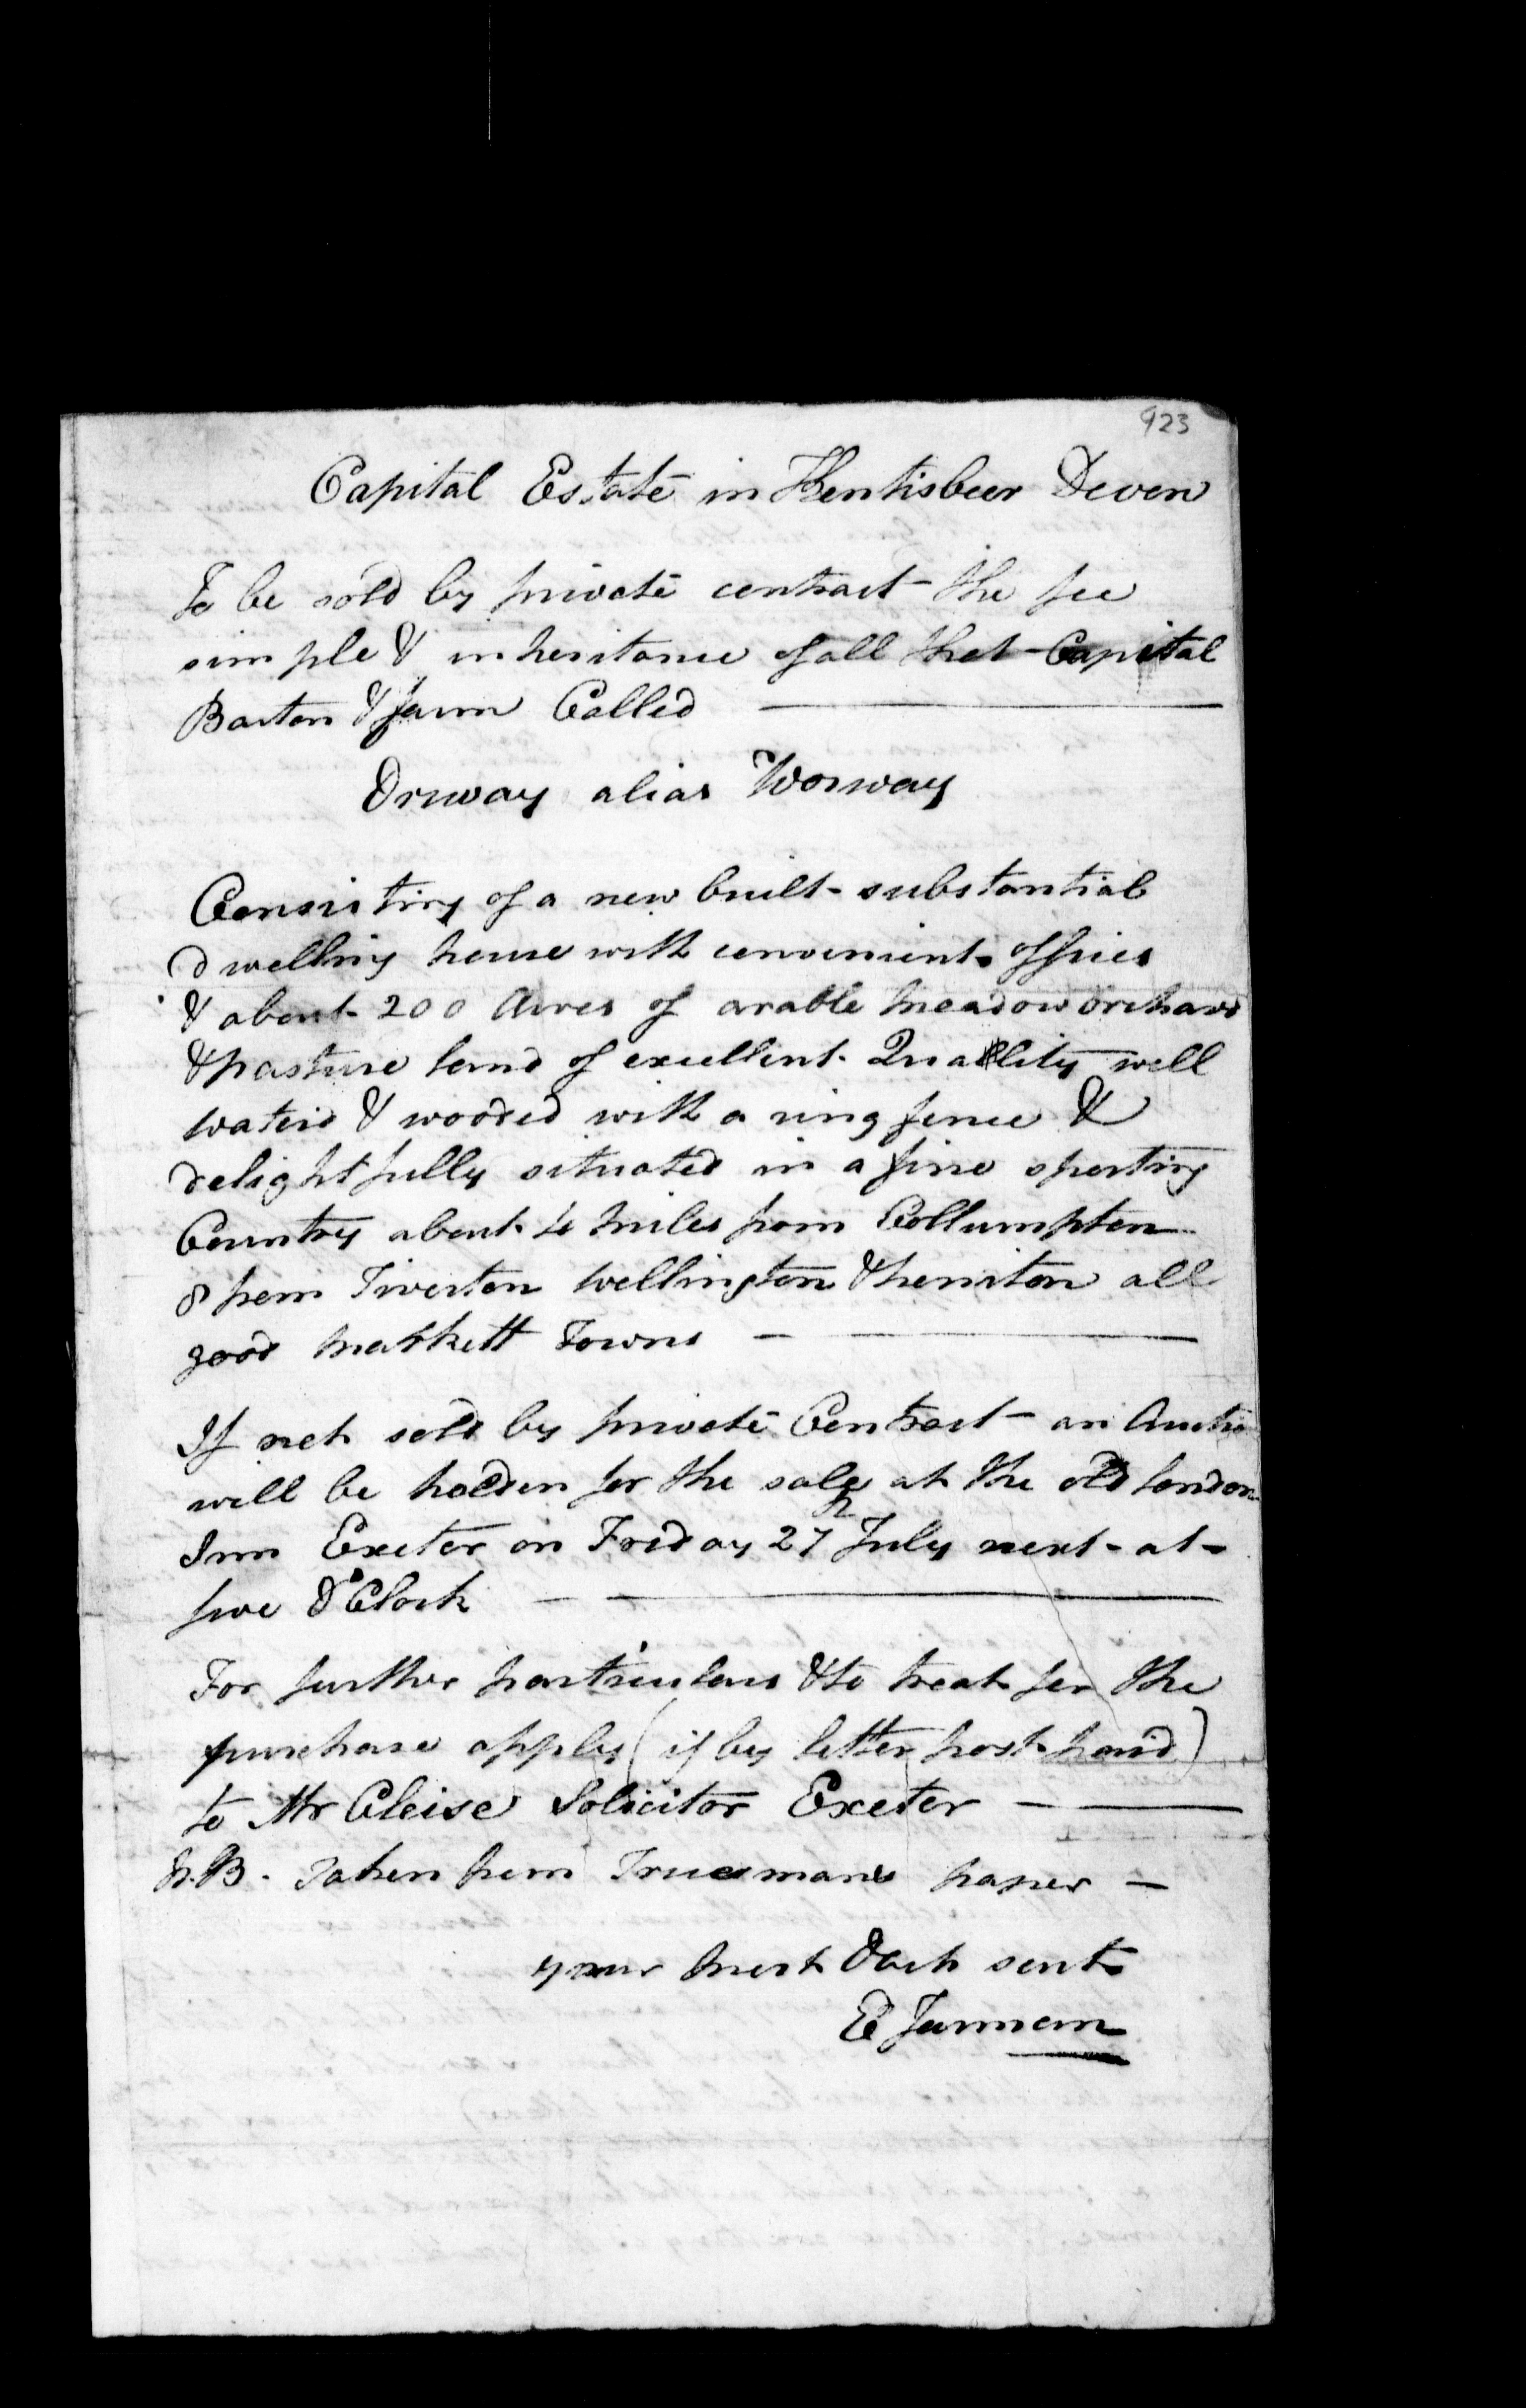 923
Capital Estate in Hentisbeer Devon
To be sold by private contract the fee
simple & inheritance of all that Capital
Barton & farm Called
Orway alias Worway
Consisting of a new built substantial
dwelling house with convenient offices
& about 200 Acres of arable meadow orchard
& pasture land of excellent Quallity well
waterd & wooded with a ring fence &
delightfully situated in a fine sporting
Country about 4 miles from Collumpton
8 from Tiverton Wellington & honiton all
good markett Towns
If not sold by private Contract an Auctio
will be holden for the sale at the old London
Inn Exeter on Friday 27 July next at
five O'Clock
For further particulars & to treat for the
purchase apply (if by letter post paid)
to Mr Solicitor Exeter
N.B. Taken from Truemans paper
your most Obt servt
E Jarman